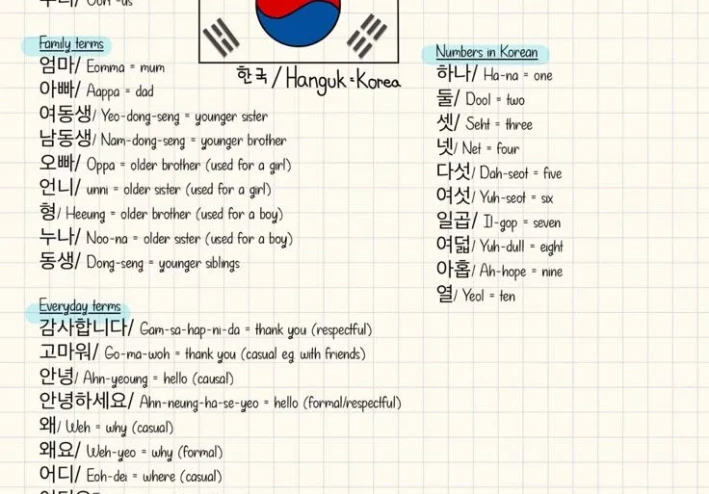 Family terms
엄마/ Eomma = mum
아빠/ Aappa = dad
여동생/ Yeo-dong-seng = younger sister
남동생/ Nam-dong-seng = younger brother
오빠/ Oppa = older brother (used for a girl)
언니/ unni = older sister (used for a girl)
형/ Heeung = older brother (used for a boy)
누나/ Noo-na = older sister (used for a boy)
동생/ Dong-seng = younger siblings
한국/Hanguk=Korea
Numbers in Korean
하나/ Ha-na = one
둘/ Dool = two
셋/ Seht = three
넷/ Net = four
다섯/ Dah-seot = five
여섯/ Yuh-seot = six
일곱/ Il-gop = seven
여덟/ Yuh-dull = eight
아홉/ Ah-hope = nine
열/ Yeol = ten
Everyday terms
감사합니다/ Gam-sa-hap-ni-da = thank you (respectful)
고마워/ Go-ma-woh = thank you (casual eg with friends)
안녕/ Ahn-yeoung = hello (causal)
안녕하세요/ Ahn-neung-ha-se-yeo = hello (formal/respectful)
왜/ Weh = why (casual)
왜요/ Weh-yeo = why (formal)
어디/ Eoh-dei = where (casual)